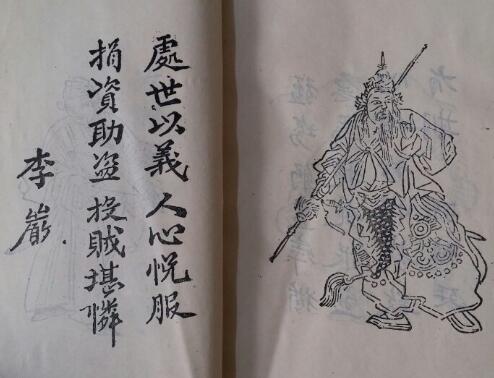 處世以義人心悦服
捐資助盜投賊堪憐
李巖